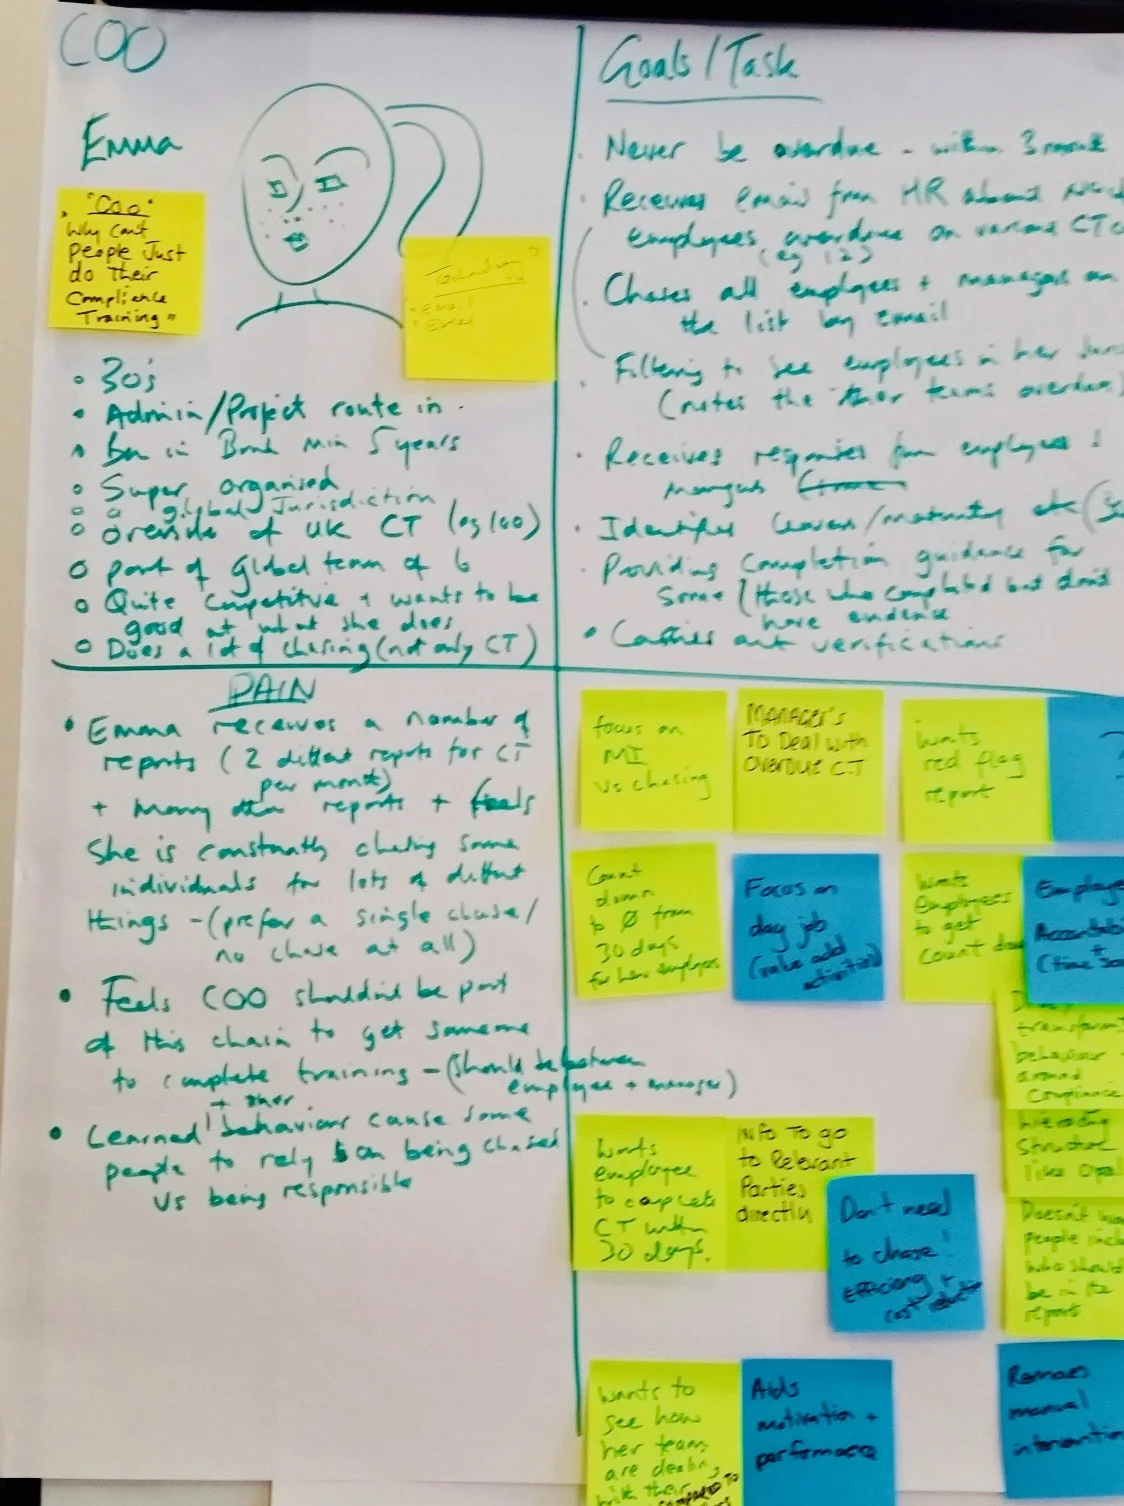 COO
Emma
"COO"
"Why Can't
People Just
do Their
Compliance
Training"
Technology?
• Email
• Excel
• 30's
• Admin/Project route in
in Bank Min 5 years
Super organised
global Jurisdiction
of UK CT (og 100)
part of Global team of 6
Quite competitive + wants to be
good at what she does
Does a lot of chasing (not only CT)
Goals/Task
• Never be overdue - within 3 month
• Receives email from HR about
employees overdue on various CT
(eg 12)
• Chases all employees + managers on
the list by email
• Filtering to see employees in her
(notes the other teams overdue)
• Receives responses from employees &
managers
• Identifies leavers/maturnity etc
• Providing Completion guidance for
some (those who completed but don't
have evidence
• Carries out verifications
PAIN
• Emma receives a number of
reports (2 diffent reports for CT
per month)
+ many other reports + feels
She is constantly chasing same
individuals for lots of diffent
things - (prefer a single chase/
no chase at all)
• Feels COO shouldn't be part
of this chain to get someone
to complete training - (should be between
employee + manager)
+ other
• Learned behaviours cause some
people to rely on being chased
Vs being responsible
focus on
MI
Vs chasing
MANAGER'S
TO Deal with
OVERDUE CT
wants
red flag
report
?
Count
down
to 0 from
30 days
for her employees
Focus on
day job
(value add
activities)
Wants
employees
to get
count down
Employee
Accountab
(time +
transform
behaviour
around
Compliance
hierarchy
Structure
like Opal
Doesn't
people incl
who should
be in the
report
Wants
employee
to complete
CT within
30 days.
INFO TO go
to Relevant
Parties
directly
Don't need
to chase!
Efficiency +
cost reduction
Wants to
see how
her teams
are dealing
with their
COMPARED TO
Aids
motivation +
performance
Removes
manual
intervention